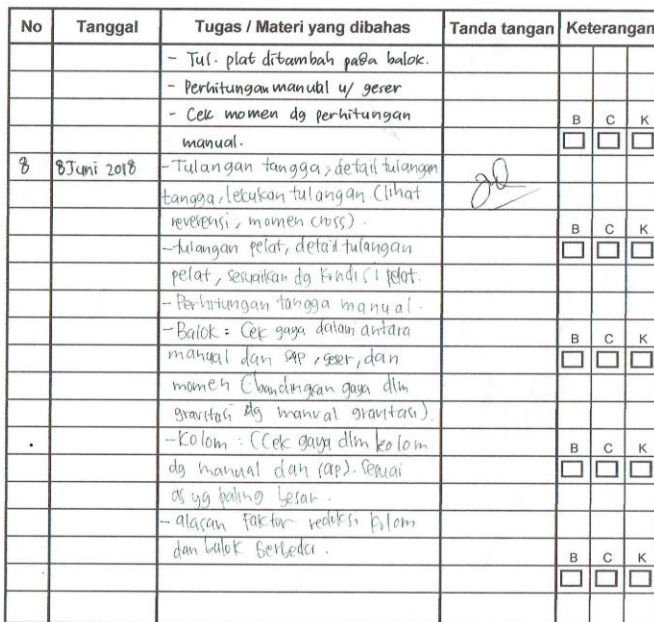 No Tanggal Tugas / Materi yang dibahas Tanda tangan Keterangan
- Tul. plat ditambah pada balok.
- Perhitungan manual u/ geser
- Cek momen dg perhitungan
B C K
manual.
8 8 Juni 2018 - Tulangan tangga, detail tulangan
tangga, lekukan tulangan (lihat
reverensi, momen cross).
B C K
- tulangan pelat, detail tulangan
pelat, sesuaikan dg kondisi pelat.
- Perhitungan tangga manual.
- Balok : Cek gaya dalam antara
B C K
manual dan SAP, geser, dan
momen (bandingkan gaya dlm
gravitasi dg manual gravitasi).
- Kolom : (Cek gaya dlm kolom
B C K
dg manual dan sap). Sesuai
as yg paling besar.
- alasan Faktor reduksi kolom
dan balok berbeda.
B C K